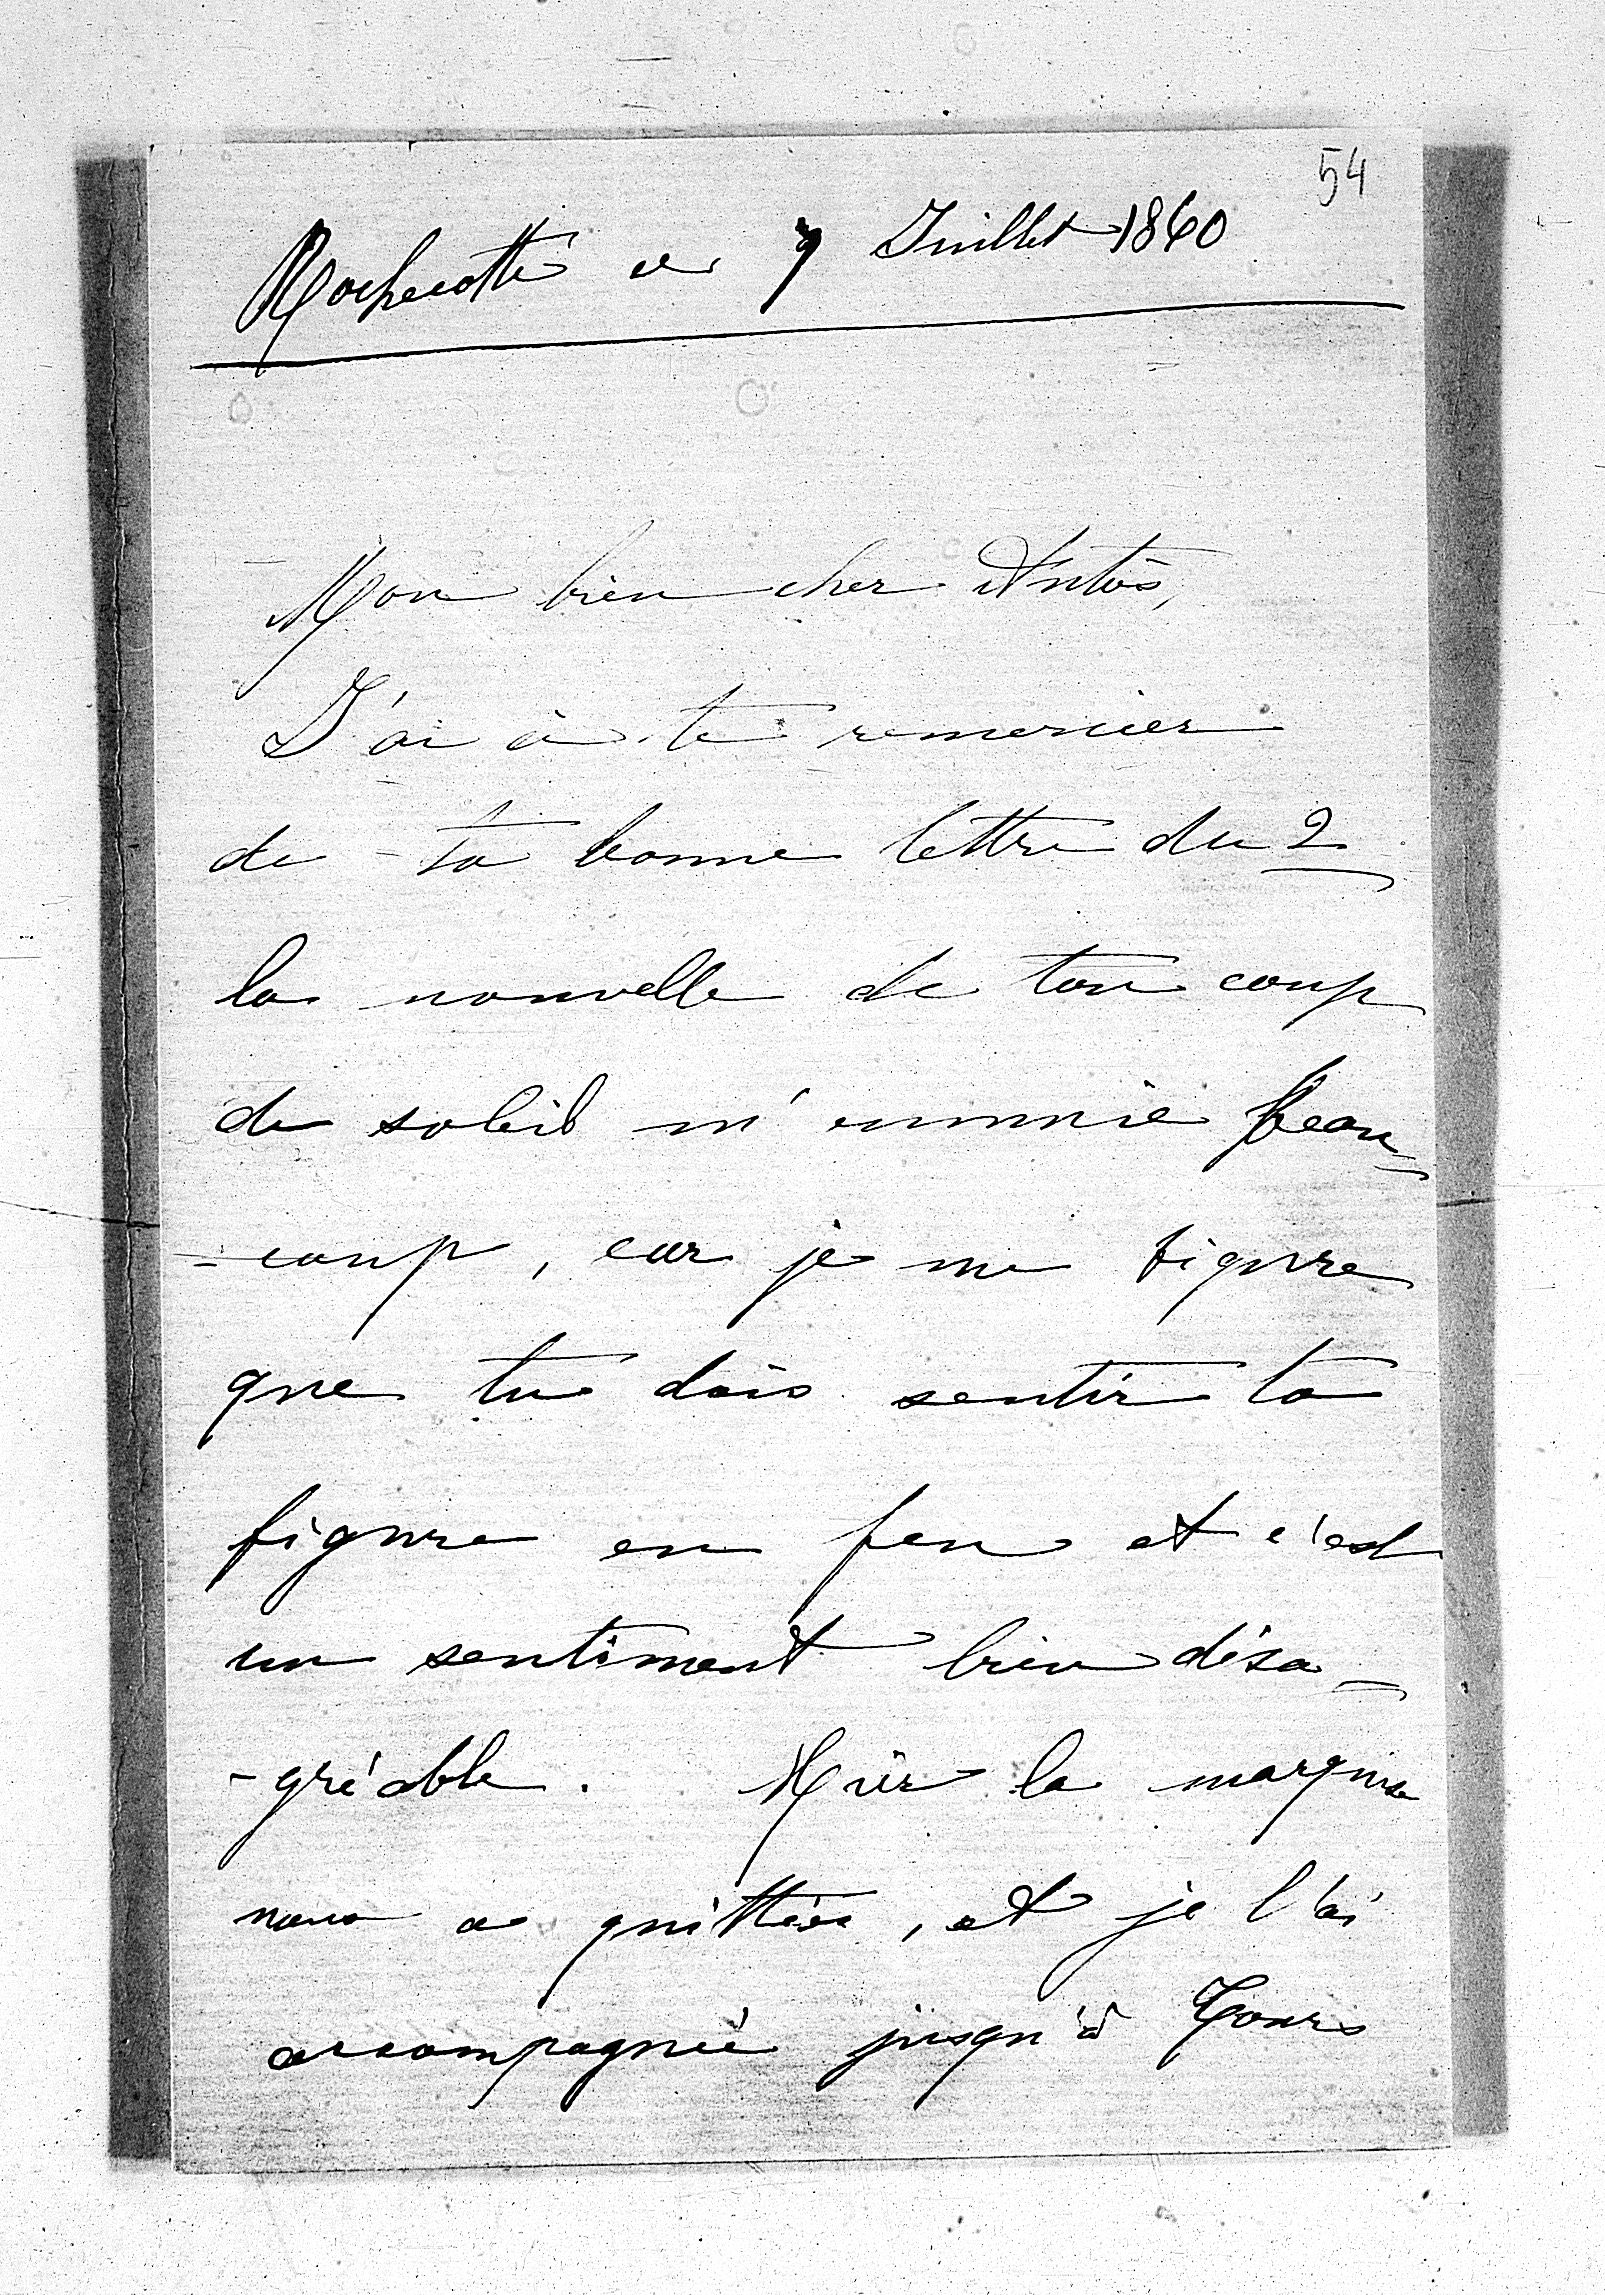 54
Rochecotte ce 7 Juillet 1860
Mon bien cher Antos,
J'ai à te remercier
de ta bonne lettre du 2
la nouvelle de ton coup
de soleil m'ennuie beau-
-coup, car je me figure
que tu dois sentir ta
figure en feu et c'est
un sentiment bien désa-
-gréable. Hier la marquise
nous a quittés, et je l'ai
accompagnée jusqu'à Tours